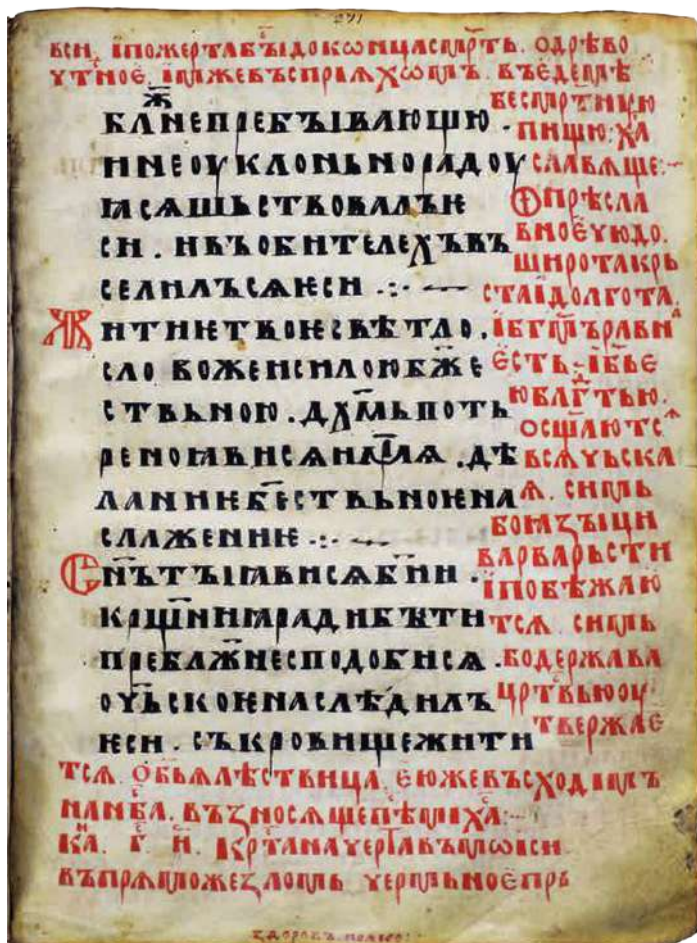 вси. їпожертабы́докѡнцасмр҃ть. ѻдрѣво
утное. їмжевъсприꙗхѡмъ. въедемѣ
бл҃жнепребꙑвающю.
ннеоуклоньнорадоу
ꙗсѧшьствовалъѥ
си. нвъобителехъвъ
селилъсѧѥси .:. —
Житиѥтвоѥсвѣтло.
словоженсилоюбж҃е
ствьною. дх҃мьпоть
реноꙗвисѧнамꙗ. дѣ
ланииѥбествьноѥна
слажениѥ .:. —
Сн҃ътꙑꙗвисѧбж҃ии.
крщ҃нииꙗрадибꙑти
преблаж҃несподобисѧ.
оч҃ьскоѥнаслѣдилъ
ѥси. съкровищежити
бесмртную
пищю: ха
славѧще:-
Ѡпрѣсла
вноеѵюдо.
широтакрь
стаїдолгота.
їбг҃мъравна
есть. їбж҃ье
юблг҃тью.
осщ҃аютсѧ
всѧѵьска
ѧ. симь
бомꙁꙑци
варварьсти
їпобѣжаю
тсѧ. симь
бодержава
црт҃вьюоу
твержае
тсѧ. Ѻбьꙗлѣствица. еюжевъсходимъ
нанб҃а. въꙁносѧщепѣмиха:-
ка. г҃. н҃. їкрт҃анаѵертавъмѡиси
въпрѧможеꙁломь ѵермьноепрѣ
ꙁдоровъ.